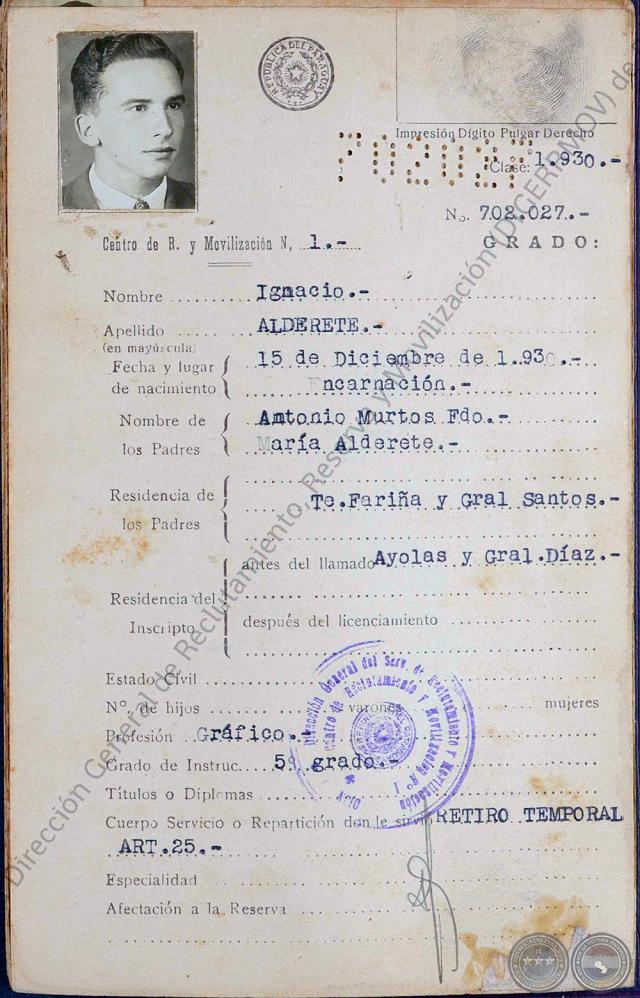 REPUBLICA DEL PARAGUAY
Impresión Dígito Pulgar Derecho
702027
Clase: 1.930.-
No. 702.027.-
Centro de R. y Movilización N, 1.-
GRADO:
Nombre Ignacio.-
Apellido ALDERETE.-
(en mayúscula)
Fecha y lugar 15 de Diciembre de 1.930.-
de nacimiento Encarnación.-
Nombre de Antonio Murtos Fdo.-
los Padres María Alderete.-
Residencia de Te.Fariña y Gral Santos.-
los Padres
antes del llamado Ayolas y Gral.Díaz.-
Residencia del
Inscripto después del licenciamiento
Estado Civil
N°. de hijos varones mujeres
Profesión Gráfico.-
Grado de Instruc. 5º grado.-
Títulos o Diplomas
Cuerpo Servicio o Repartición donde sirvió RETIRO TEMPORAL
ART.25.-
Especialidad
Afectación a la Reserva
Dirección General del Serv. de Reclutamiento y Movilización
Centro de Reclutamiento y Movilización N° 1
Dirección General de Reclutamiento, Reserva y Movilización (DIGERRMOV) de